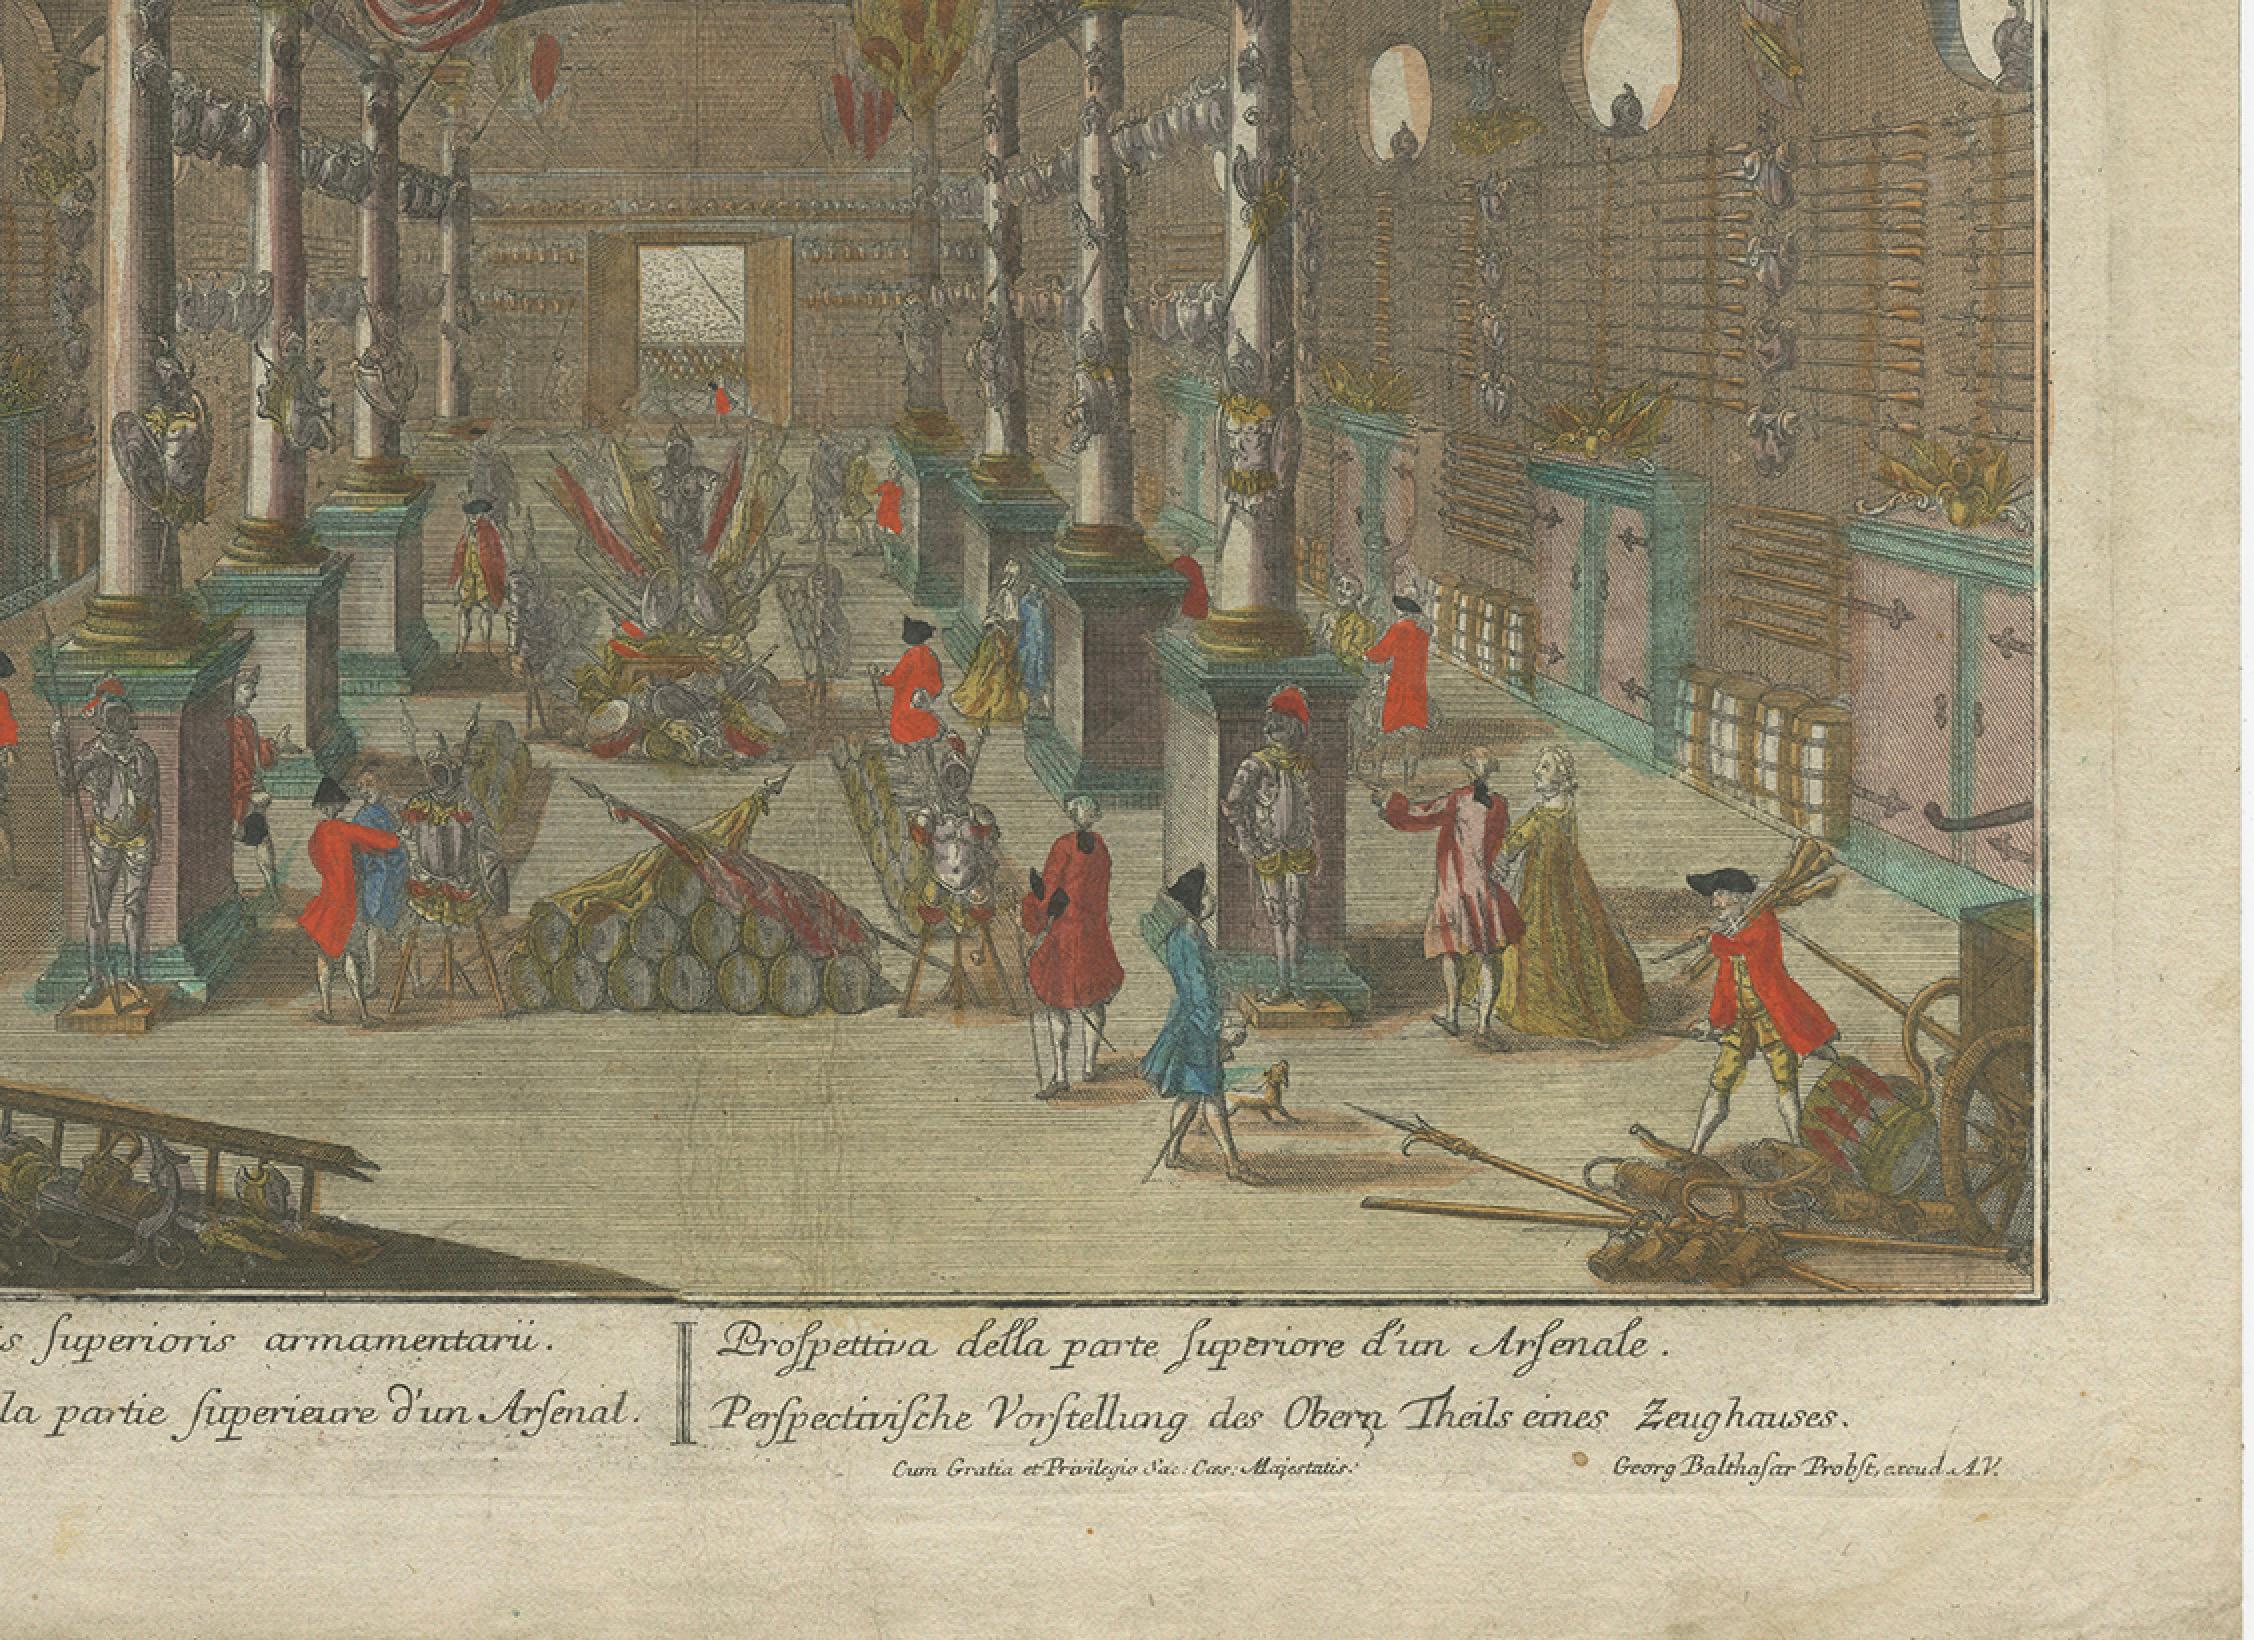 is ſuperioris armamentarii.
la partie ſuperieure d'un Arſenal.
Proſpettiva della parte ſuperiore d'un Arſenale.
Perſpectiviſche Vorſtellung des Obern Theils eines Zeughauses.
Cum Gratia et Privilegio Sac: Cæs: Majestatis.
Georg Balthaſar Probſt, excud. A.V.